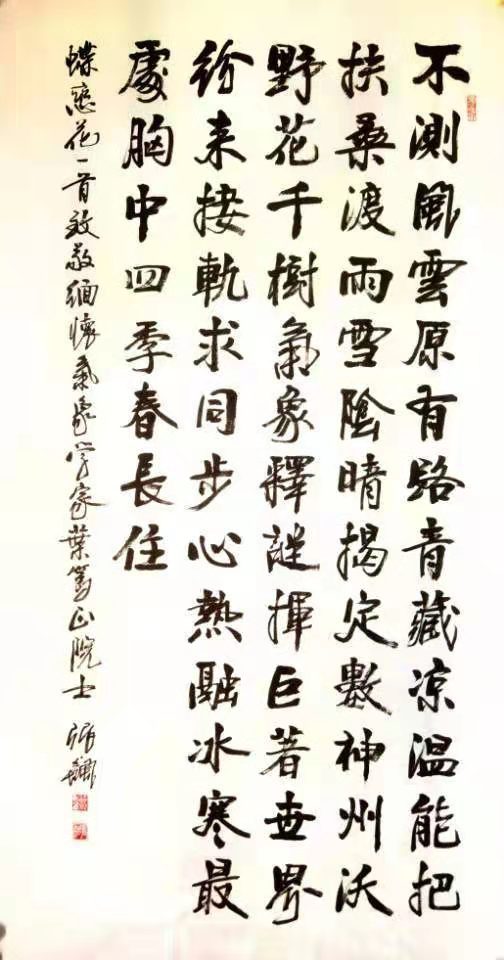 不測風雲原有路青藏凉温能把
扶桑渡雨雪陰晴揭定數神州沃
野花千樹氣象釋謎揮巨著世界
紛来接軌求同步心熱融冰寒最
處胸中四季春長住
蝶戀花一首致敬緬懷氣象學家葉篤正院士